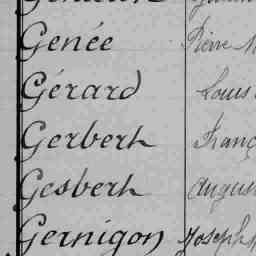 Genée Pierre
Gérard Louis
Gerberh Franç
Gesberh Augus
Gernigon Joseph